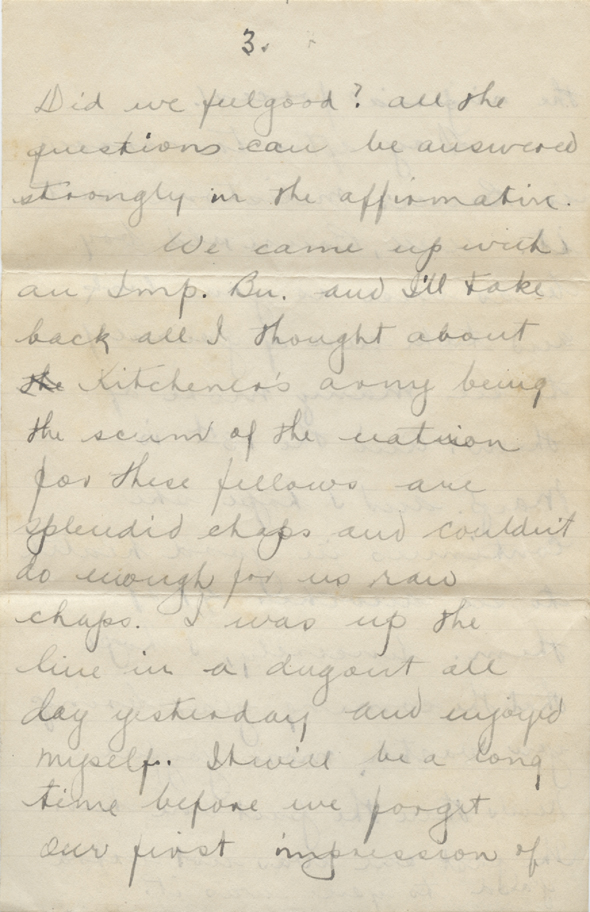 3.
Did we feel good? all the
questions can be answered
strongly in the affirmative.
We came up with
an Imp. Bn. and I'll take
back all I thought about
the Kitchener's army being
the scum of the nation
for these fellows are
splendid chaps and couldn't
do enough for us raw
chaps. I was up the
line in a dugout all
day yesterday and enjoyed
myself. It will be a long
time before we forget
our first impression of